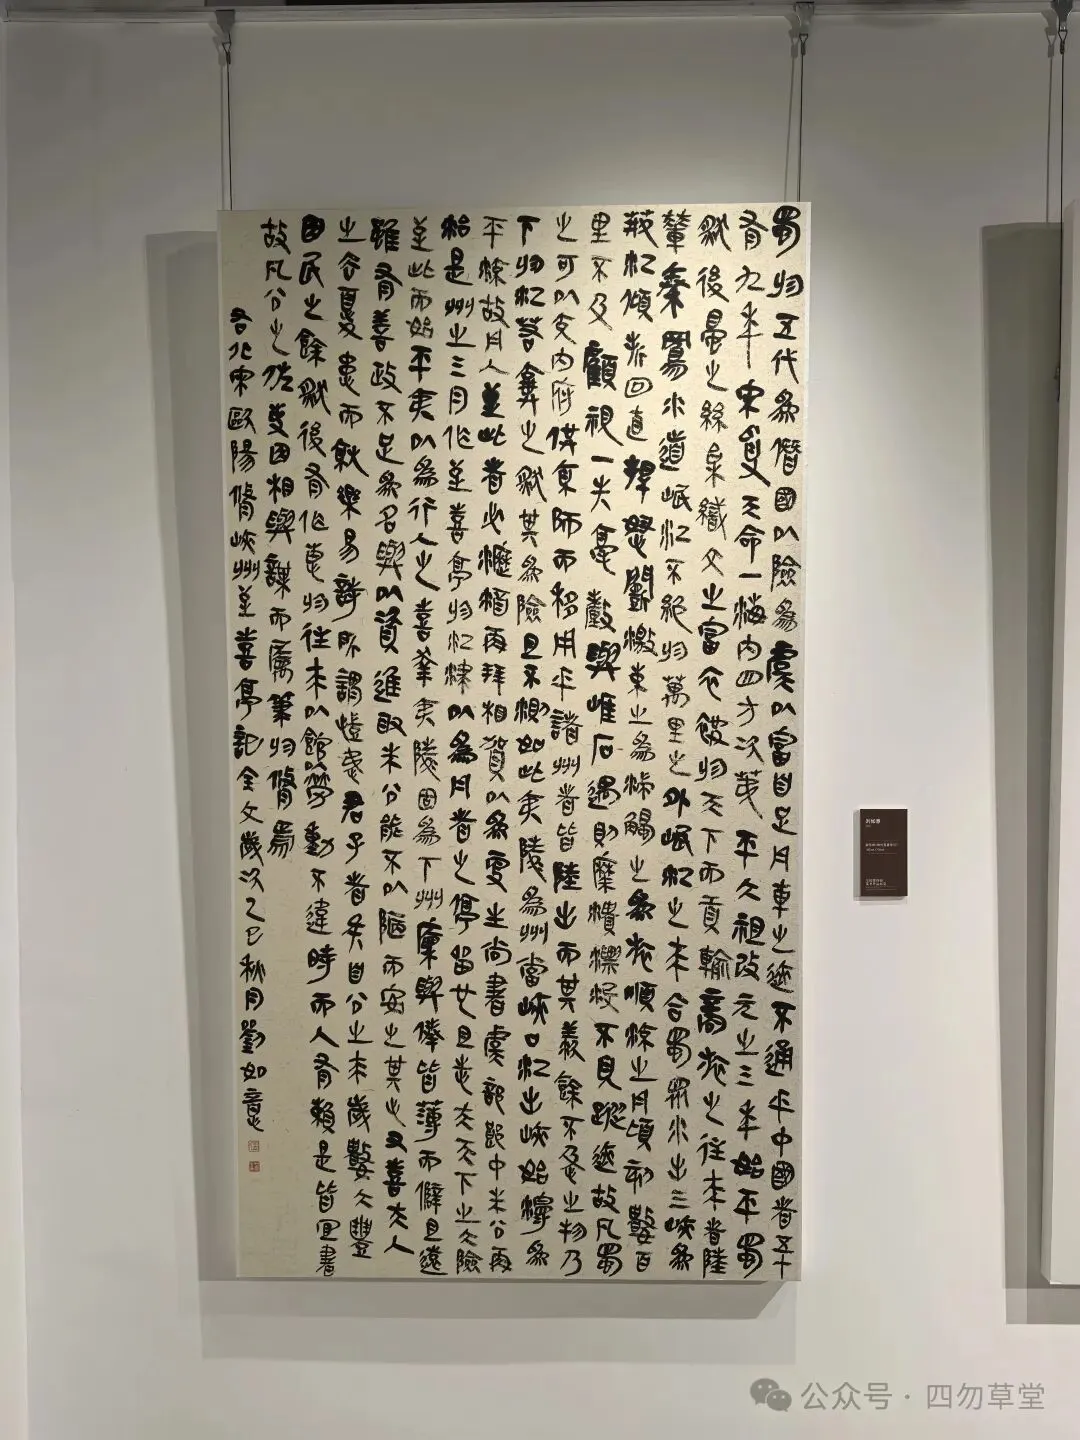 蜀於五代爲僭國以險爲虞以富自足舟車之迹不通乎中國者五十
有九年宋受天命一海內四方次第平太祖改元之三年始平蜀
然後蜀之絲枲織文之富衣被於天下而貢輸商旅之往來者陸
輦秦鳳水道岷江不絕於萬里之外岷江之來合蜀眾水出三峽爲
荊江傾折回直捍怒鬭激束之爲湍觸之爲旋順流之舟頃刻數百
里不及顧視一失毫釐與崖石遇則糜潰漂沒不見蹤迹故凡蜀
之可以充內府供京師而移用乎諸州者皆陸出而其羨餘不急之物乃
下於江若棄之然其爲險且不測如此夷陵爲州當峽口江出峽始漫爲
平流故舟人至此者必瀝酒再拜相賀以爲更生尚書虞部郎中朱公再
治是州之三月作至喜亭於江津以爲舟者之停留也且志夫天下之大險
至此而始平夷以爲行人之喜幸夷陵固爲下州廩與俸皆薄而僻且遠
雖有善政不足爲名譽以資進取朱公能不以陋而安之其心又喜夫人
之去憂患而就樂易詩所謂愷悌君子者矣自公之來歲數大豐
因民之餘然後有作惠於往來以館以勞動不違時而人有賴是皆宜書
故凡公之佐吏因相與謀而屬筆於脩焉
右北宋歐陽脩峽州至喜亭記全文歲次乙巳秋月劉如意
公众号·四勿草堂